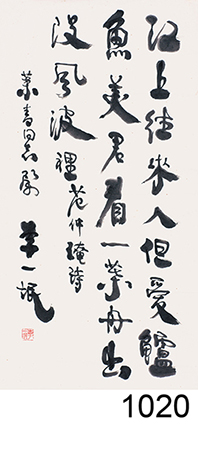 江上往來人但愛鱸
魚美君看一葉舟出
沒風波裡 范仲淹詩
葉青同志屬
李一氓
1020